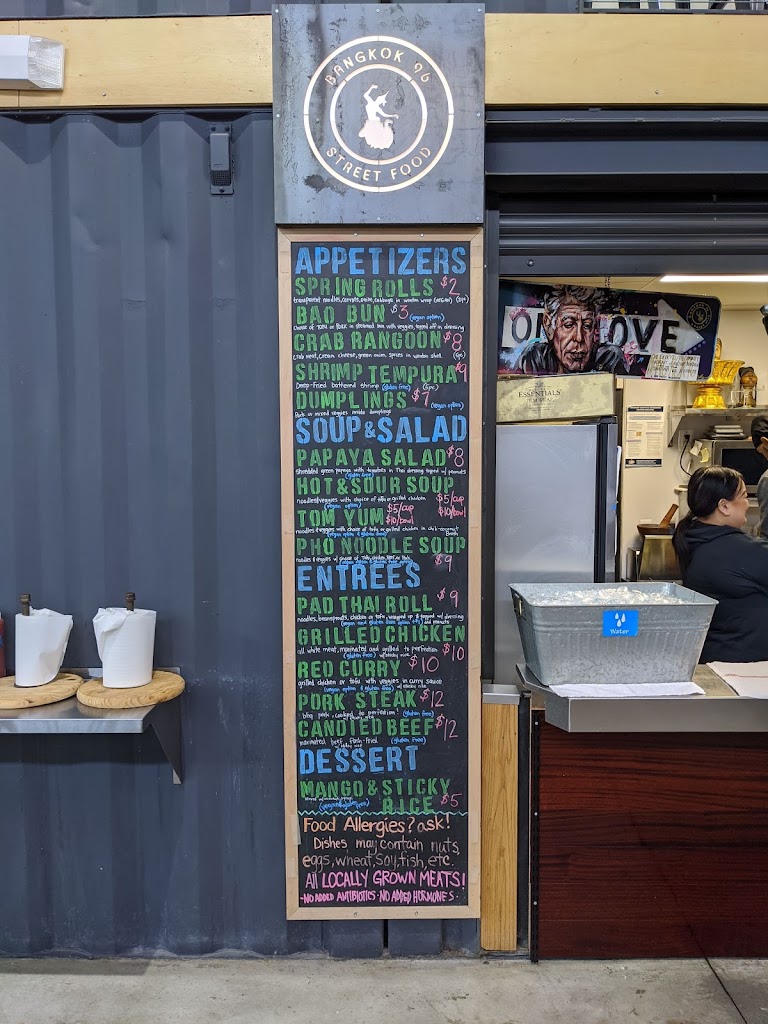 BANGKOK 96
STREET FOOD
APPETIZERS
SPRING ROLLS $2
transparent noodles, carrots, onion, cabbage in wonton wrap (vegan) (1pc)
BAO BUN $3 (vegan option)
choice of TOFU or PORK in steamed bun with veggies, topped off in dressing
CRAB RANGOON $8
crab meat, cream cheese, green onion, spices in wonton shell (6pc)
SHRIMP TEMPURA $9
Deep-fried battered shrimp (gluten free) (5pc)
DUMPLINGS $7 (vegan option)
Pork or mixed veggies inside dumplings
SOUP & SALAD
PAPAYA SALAD $8
shredded green papaya with tomatoes in Thai dressing topped w/ peanuts
(gluten free)
HOT & SOUR SOUP
noodles & veggies with choice of tofu or grilled chicken $5/cup
(vegan option) $10/bowl
TOM YUM $5/cup
$10/bowl
noodles & veggies with choice of tofu or grilled chicken in chili-coconut
(vegan option & gluten free) Broth
PHO NOODLE SOUP
noodles & veggies w/ choice of Tofu, chicken, Beef, or Pork
(vegan option & gluten free option) $9
ENTREES
PAD THAI ROLL $9
noodles, beansprouts, chicken or tofu, wrapped up & topped w/ dressing
and peanuts
GRILLED CHICKEN
all white meat, marinated and grilled to perfection $10
(gluten free) w/ sticky rice
RED CURRY $10
grilled chicken or tofu with veggies in curry sauce
(vegan option & gluten free) w/ sticky rice
PORK STEAK $12
bbq pork, cooked to perfection! (gluten free)
CANDIED BEEF $12
marinated beef, flash-fried (gluten free)
w/ sticky rice
DESSERT
MANGO & STICKY
RICE $5
(vegan & gluten free)
Food Allergies? ask!
Dishes may contain nuts,
eggs, wheat, soy, fish, etc.
All LOCALLY GROWN MEATS!
-NO ADDED ANTIBIOTICS - NO ADDED HORMONES-
ONE LOVE
ESSENTIALS
Water